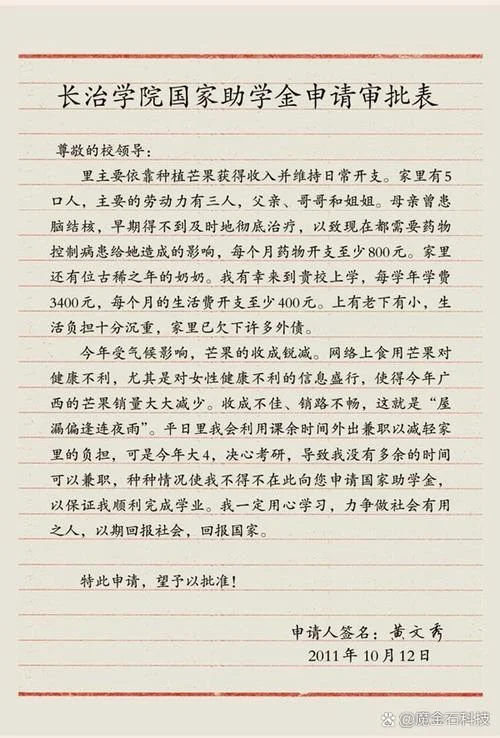 长治学院国家助学金申请审批表
尊敬的校领导：
里主要依靠种植芒果获得收入并维持日常开支。家里有5
口人，主要的劳动力有三人，父亲、哥哥和姐姐。母亲曾患
脑结核，早期得不到及时地彻底治疗，以致现在都需要药物
控制病患给她造成的影响，每个月药物开支至少800元。家里
还有位古稀之年的奶奶。我有幸来到贵校上学，每学年学费
3400元，每个月的生活费开支至少400元。上有老下有小，生
活负担十分沉重，家里已欠下许多外债。
今年受气候影响，芒果的收成锐减。网络上食用芒果对
健康不利，尤其是对女性健康不利的信息盛行，使得今年广
西的芒果销量大大减少。收成不佳、销路不畅，这就是“屋
漏偏逢连夜雨”。平日里我会利用课余时间外出兼职以减轻家
里的负担，可是今年大4，决心考研，导致我没有多余的时间
可以兼职，种种情况使我不得不在此向您申请国家助学金，
以保证我顺利完成学业。我一定用心学习，力争做社会有用
之人，以期回报社会，回报国家。
特此申请，望予以批准！
申请人签名：黄文秀
2011年10月12日
魔金石科技